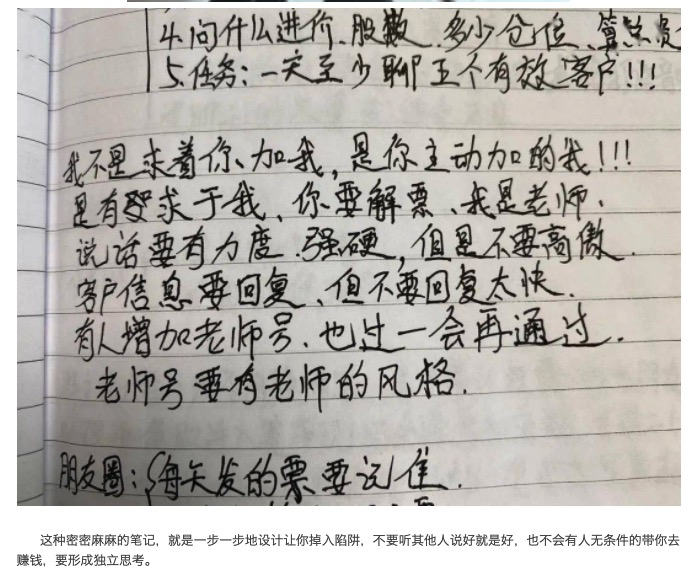 4.问什么进价、股数、多少仓位、算
5.任务：一天至少聊五个有效客户!!!
我不是求着你、加我，是你主动加的我!!!
是有要求于我、你要解票、我是老师.
说话要有力度.强硬，但是不要高傲.
客户信息要回复、但不要回复太快.
有人增加老师号、也过一会再通过.
老师号要有老师的风格.
朋友圈：每天发的票要记住.
这种密密麻麻的笔记，就是一步一步地设计让你掉入陷阱，不要听其他人说好就是好，也不会有人无条件的带你去
赚钱，要形成独立思考。